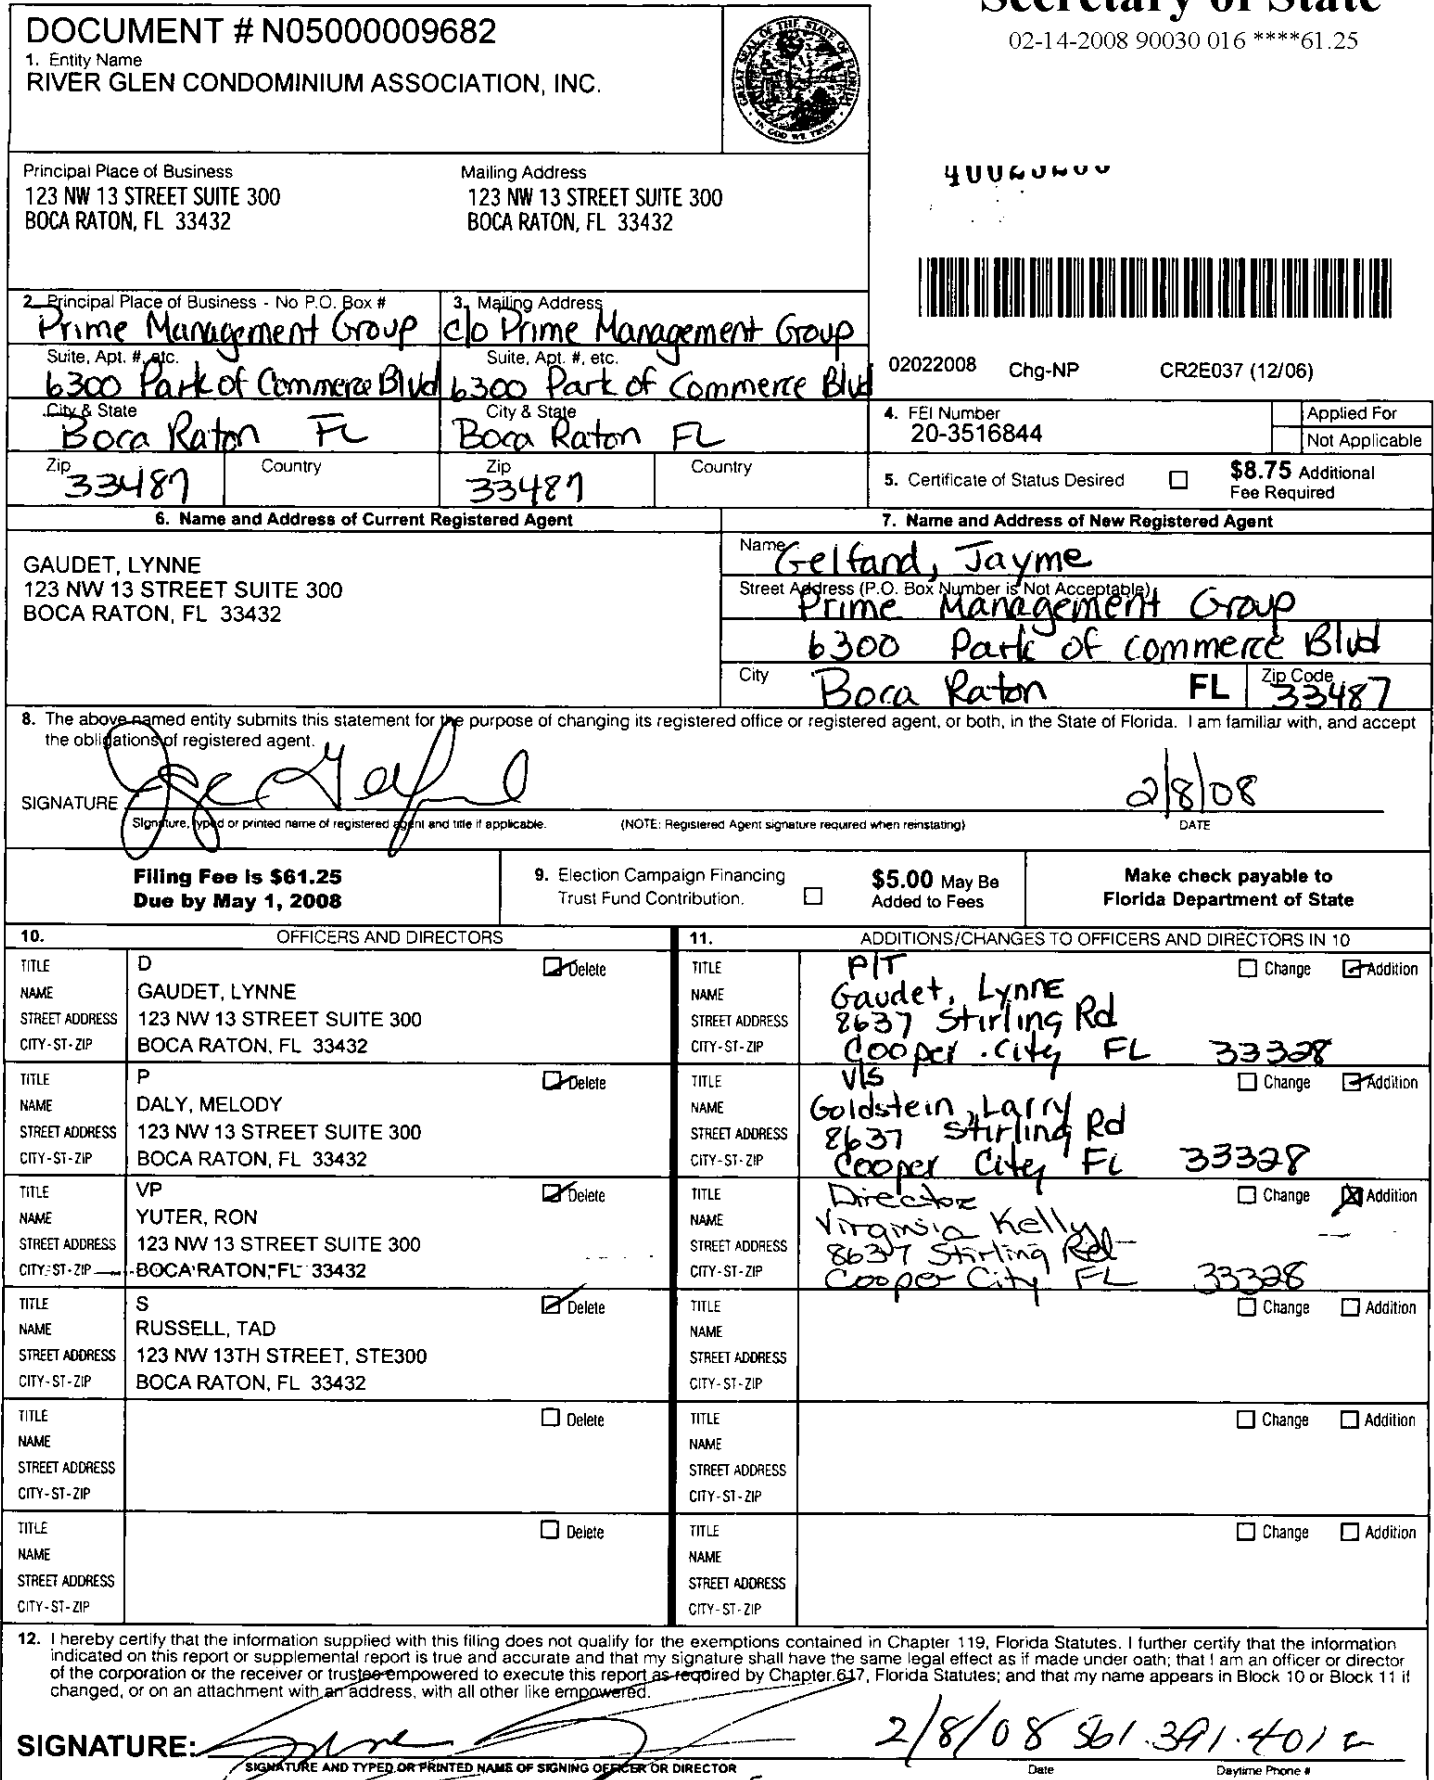 Secretary of State
02-14-2008 90030 016 ****61.25
DOCUMENT # N05000009682
1. Entity Name
RIVER GLEN CONDOMINIUM ASSOCIATION, INC.
GREAT SEAL OF THE STATE OF FLORIDA
IN GOD WE TRUST
Principal Place of Business
123 NW 13 STREET SUITE 300
BOCA RATON, FL 33432
Mailing Address
123 NW 13 STREET SUITE 300
BOCA RATON, FL 33432
2. Principal Place of Business - No P.O. Box #
Prime Management Group
Suite, Apt. #, etc.
6300 Park of Commerce Blvd
City & State
Boca Raton FL
Zip
33487
Country
3. Mailing Address
c/o Prime Management Group
Suite, Apt. #, etc.
6300 Park of Commerce Blvd
City & State
Boca Raton FL
Zip
33487
Country
02022008 Chg-NP CR2E037 (12/06)
4. FEI Number
20-3516844
Applied For
Not Applicable
5. Certificate of Status Desired
$8.75 Additional
Fee Required
6. Name and Address of Current Registered Agent
GAUDET, LYNNE
123 NW 13 STREET SUITE 300
BOCA RATON, FL 33432
7. Name and Address of New Registered Agent
Name
Gelfand, Jayme
Street Address (P.O. Box Number is Not Acceptable)
Prime Management Group
6300 Park of Commerce Blvd
City Boca Raton FL Zip Code 33487
8. The above named entity submits this statement for the purpose of changing its registered office or registered agent, or both, in the State of Florida. I am familiar with, and accept
the obligations of registered agent.
SIGNATURE
2/8/08
Signature, typed or printed name of registered agent and title if applicable. (NOTE: Registered Agent signature required when reinstating) DATE
Filing Fee is $61.25
Due by May 1, 2008
9. Election Campaign Financing
Trust Fund Contribution.
$5.00 May Be
Added to Fees
Make check payable to
Florida Department of State
10. OFFICERS AND DIRECTORS
TITLE D Delete
NAME GAUDET, LYNNE
STREET ADDRESS 123 NW 13 STREET SUITE 300
CITY-ST-ZIP BOCA RATON, FL 33432
TITLE P Delete
NAME DALY, MELODY
STREET ADDRESS 123 NW 13 STREET SUITE 300
CITY-ST-ZIP BOCA RATON, FL 33432
TITLE VP Delete
NAME YUTER, RON
STREET ADDRESS 123 NW 13 STREET SUITE 300
CITY-ST-ZIP BOCA RATON, FL 33432
TITLE S Delete
NAME RUSSELL, TAD
STREET ADDRESS 123 NW 13TH STREET, STE300
CITY-ST-ZIP BOCA RATON, FL 33432
TITLE Delete
NAME
STREET ADDRESS
CITY-ST-ZIP
TITLE Delete
NAME
STREET ADDRESS
CITY-ST-ZIP
11. ADDITIONS/CHANGES TO OFFICERS AND DIRECTORS IN 10
TITLE P/T Change Addition
NAME Gaudet, Lynne
STREET ADDRESS 8637 Stirling Rd
CITY-ST-ZIP Cooper City FL 33328
TITLE V/S Change Addition
NAME Goldstein, Larry
STREET ADDRESS 8637 Stirling Rd
CITY-ST-ZIP Cooper City FL 33328
TITLE Director Change Addition
NAME Virginia Kelly
STREET ADDRESS 8637 Stirling Rd
CITY-ST-ZIP Cooper City FL 33328
TITLE Change Addition
NAME
STREET ADDRESS
CITY-ST-ZIP
TITLE Change Addition
NAME
STREET ADDRESS
CITY-ST-ZIP
TITLE Change Addition
NAME
STREET ADDRESS
CITY-ST-ZIP
12. I hereby certify that the information supplied with this filing does not qualify for the exemptions contained in Chapter 119, Florida Statutes. I further certify that the information
indicated on this report or supplemental report is true and accurate and that my signature shall have the same legal effect as if made under oath; that I am an officer or director
of the corporation or the receiver or trustee empowered to execute this report as required by Chapter 617, Florida Statutes; and that my name appears in Block 10 or Block 11 if
changed, or on an attachment with an address, with all other like empowered.
SIGNATURE: 2/8/08 561.391.4012
SIGNATURE AND TYPED OR PRINTED NAME OF SIGNING OFFICER OR DIRECTOR Date Daytime Phone #